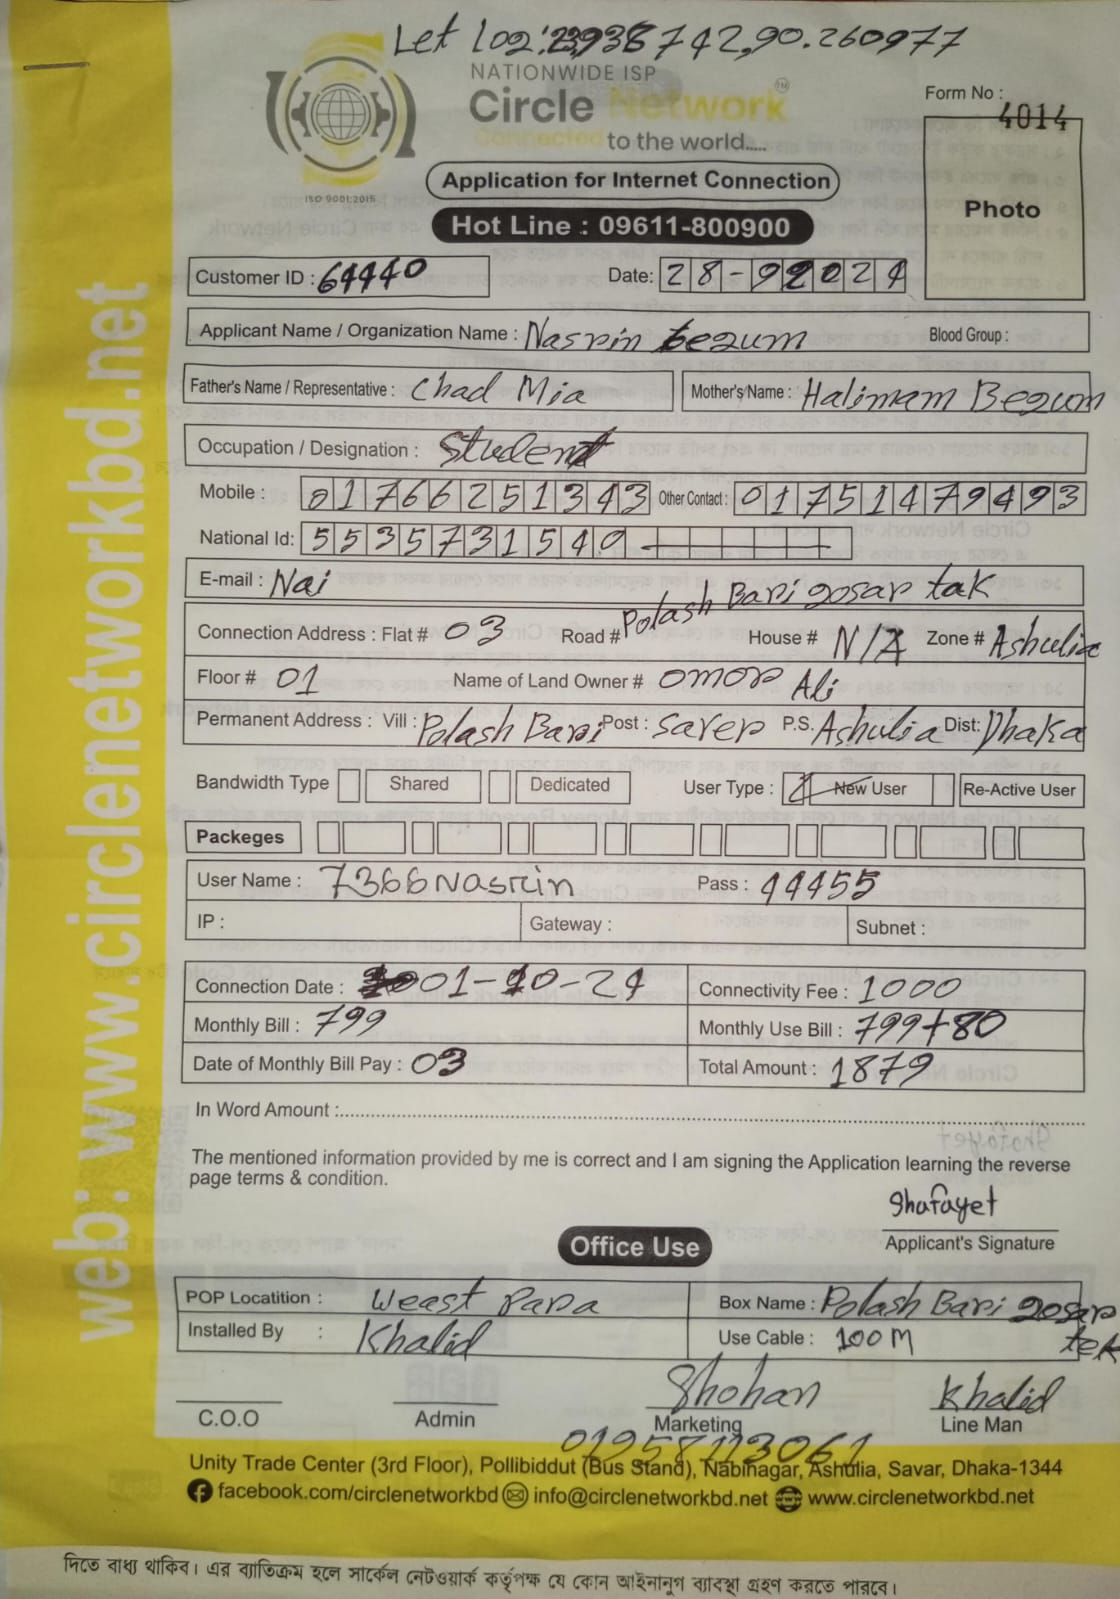 NATIONWIDE ISP
Circle Network™
Connected to the world.....
ISO 9001:2015
Form No : 4014
Photo
Application for Internet Connection
Hot Line : 09611-800900
Customer ID : 64440
Date: 28-
Applicant Name / Organization Name : Nasrin begum
Blood Group :
Father's Name / Representative : Chad Mia
Mother's Name : Halimam Begum
Occupation / Designation : Student
Mobile : 01766251343 Other Contact : 01751479493
National Id: 5535731540
E-mail : Nai
Connection Address : Flat # 03 Road # Polash Bari gosar tak House # N/A Zone # Ashulia
Floor # 01 Name of Land Owner # omor Ali
Permanent Address : Vill : Polash Bari Post : saver P.S. Ashulia Dist: Dhaka
Bandwidth Type Shared Dedicated User Type : New User Re-Active User
Packeges
User Name : 7366Nasrin Pass : 44455
IP : Gateway : Subnet :
Connection Date : 01-10-24 Connectivity Fee : 1000
Monthly Bill : 799 Monthly Use Bill : 799+80
Date of Monthly Bill Pay : 03 Total Amount : 1879
In Word Amount :
The mentioned information provided by me is correct and I am signing the Application learning the reverse
page terms & condition.
Shafayet
Applicant's Signature
Office Use
POP Locatition : Weast para Box Name : Polash Bari gosar tek
Installed By : Khalid Use Cable : 100M
Shohan Khalid
C.O.O Admin Marketing Line Man
Unity Trade Center (3rd Floor), Pollibiddut (Bus Stand), Nabinagar, Ashulia, Savar, Dhaka-1344
facebook.com/circlenetworkbd info@circlenetworkbd.net www.circlenetworkbd.net
web: www.circlenetworkbd.net
দিতে বাধ্য থাকিব। এর ব্যাতিক্রম হলে সার্কেল নেটওয়ার্ক কর্তৃপক্ষ যে কোন আইনানুগ ব্যাবস্থা গ্রহণ করতে পারবে।